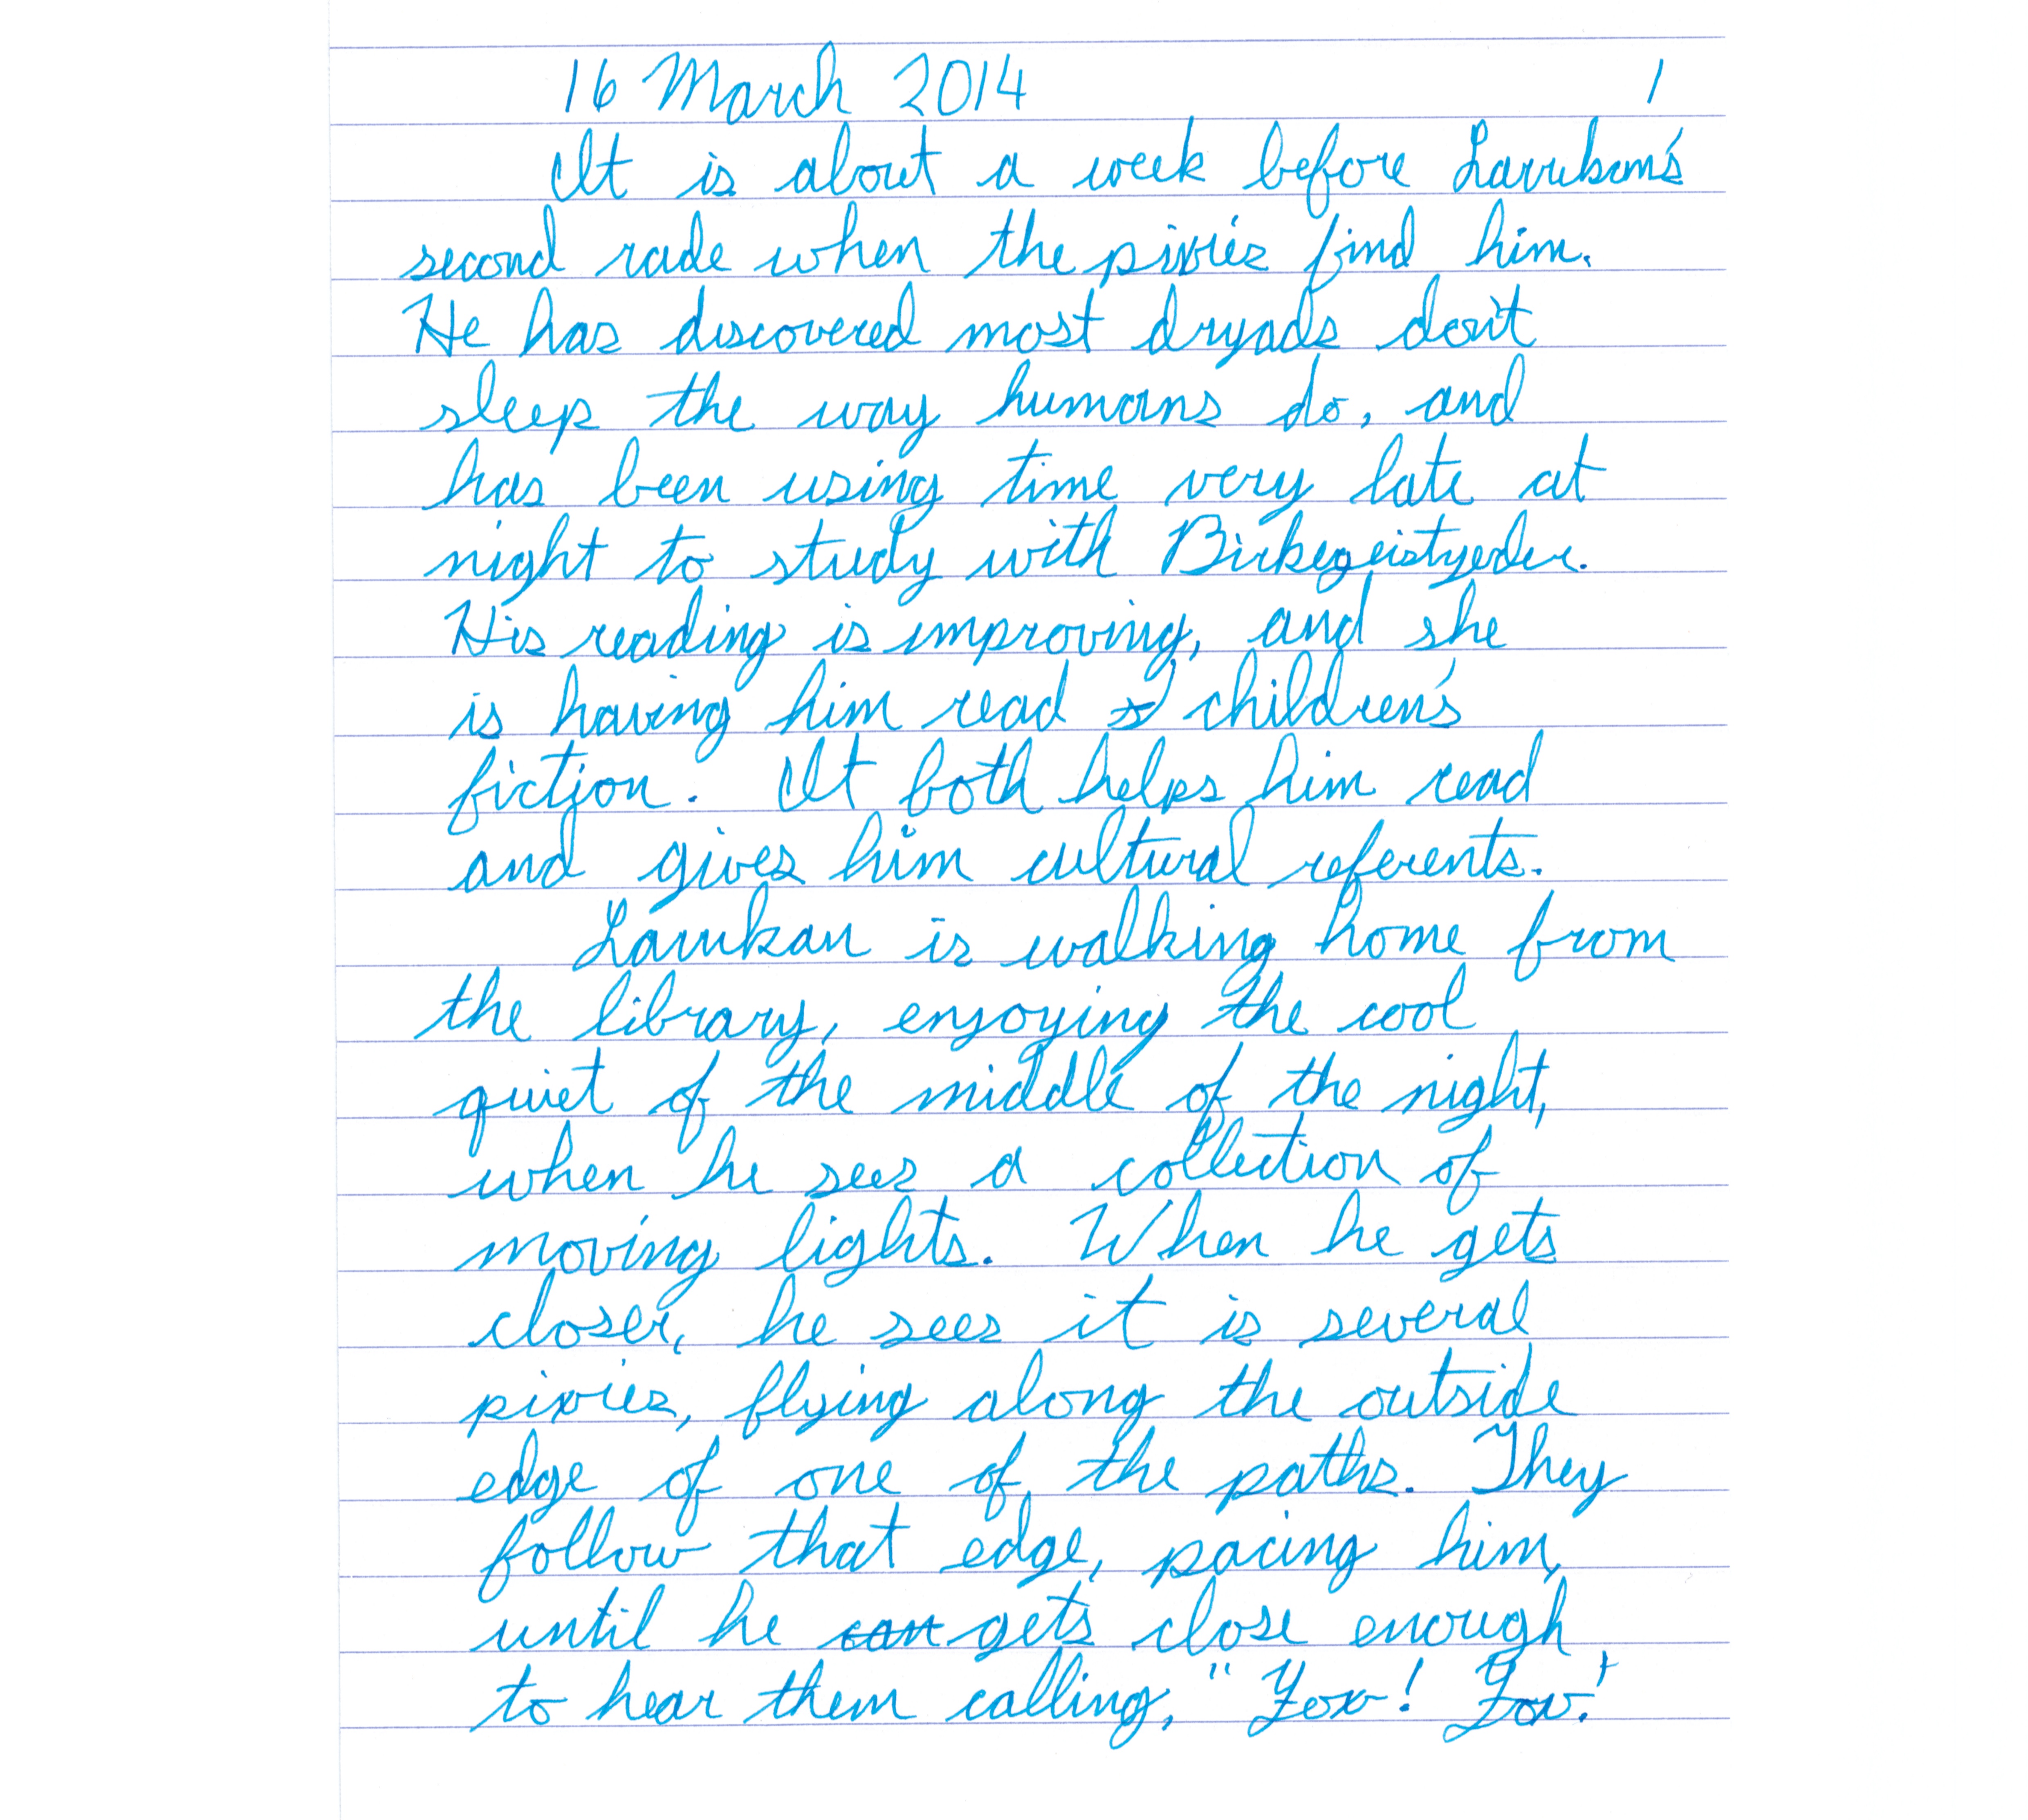 16 March 2014 1
It is about a week before Larukan's
second rade when the pixies find him.
He has discovered most dryads don't
sleep the way humans do, and
has been using time very late at
night to study with Birkegeistyeder.
His reading is improving, and she
is having him read children's
fiction. It both helps him read
and gives him cultural referents.
Larukan is walking home from
the library, enjoying the cool
quiet of the middle of the night,
when he sees a collection of
moving lights. When he gets
closer, he sees it is several
pixies, flying along the outside
edge of one of the paths. They
follow that edge, pacing him,
until he can gets close enough
to hear them calling, "Fox! Fox!